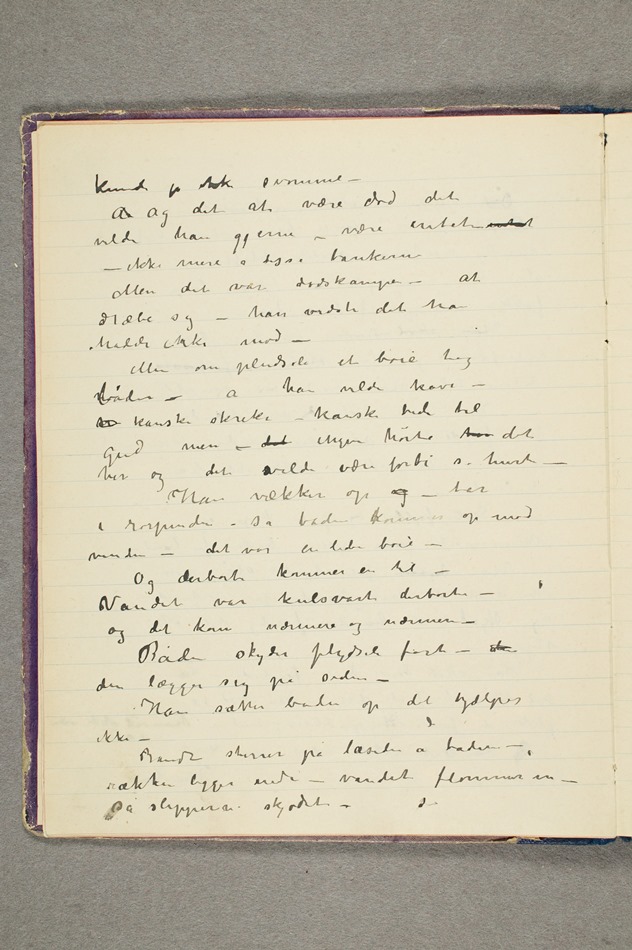 kunde jo ikke svømme –
Og det at være død det
vilde han gjerne – være intet
– ikke mere a disse tankerne
Men det var dødskampen – at
dræbe sig – han vidste det ha
hadde ikke mod –
Men om pludselig et boie tog
båden – a han vilde kave –
kanske skrike – kanske bede til
gud men – ingen hørte det
her og det vilde være forbi så hurt –
Han vækker op – tar
i rorpinden – så båden kommer op mod
vinden – det var en liden boie –
Og derborte kommer en til –
Vandet var kulsvart derborte –
og det kom nærmere og nærmere –
Båden skyder pludseli fart –
den lægger sig på siden –
Han sætter båden op det hjælper
ikke –
Brandt stirrer på læsiden a båden –
rækken ligger nede – vandet flommer in –
Så slipper han skjødet –